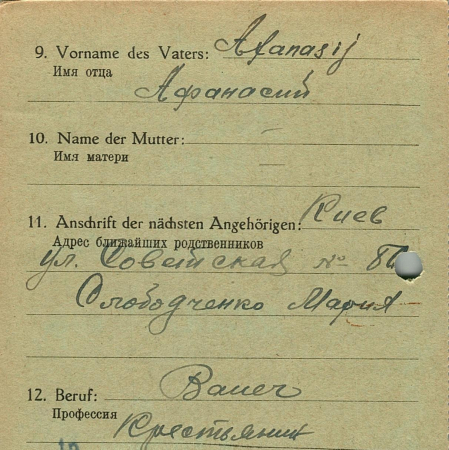 9. Vorname des Vaters: Afanasij
Имя отца
Афанасий
10. Name der Mutter: —
Имя матери —
11. Anschrift der nächsten Angehörigen: Киев
Адрес ближайших родственников
ул. Советская №
Слободченко Мария
12. Beruf: Bauer
Профессия Крестьянин